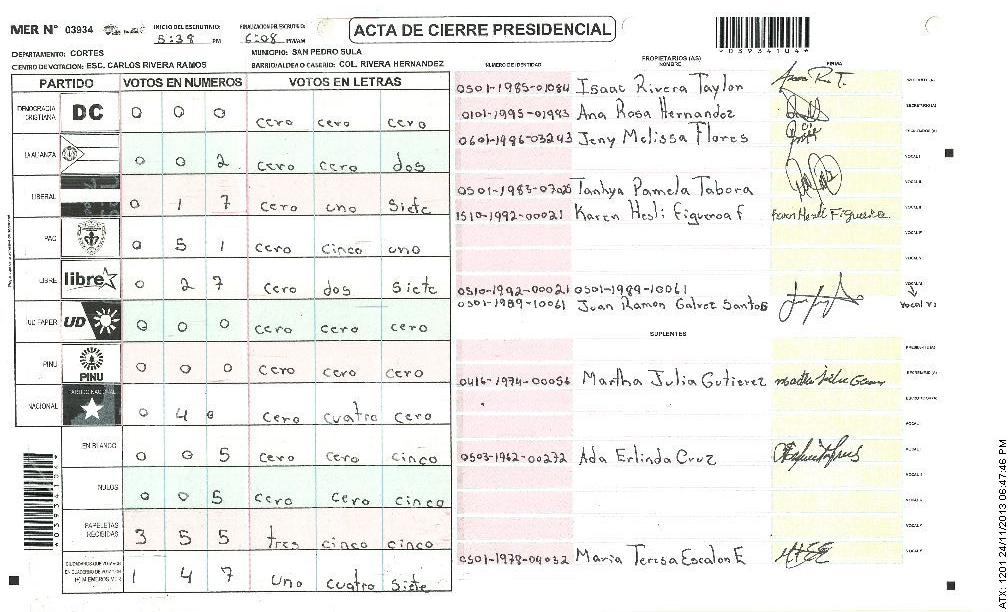 MER Nº 03934
INICIO DEL ESCRUTINIO: 5:38 PM
FINALIZACION DEL ESCRUTINIO: 6:08 PM/AM
ACTA DE CIERRE PRESIDENCIAL
* 0 3 9 3 4 1 0 4 *
DEPARTAMENTO: CORTES
MUNICIPIO: SAN PEDRO SULA
CENTRO DE VOTACION: ESC. CARLOS RIVERA RAMOS
BARRIO/ALDEA O CASERIO: COL. RIVERA HERNANDEZ
PARTIDO VOTOS EN NUMEROS VOTOS EN LETRAS
DEMOCRACIA CRISTIANA DC 0 0 0 cero cero cero
LA ALIANZA 0 0 2 cero cero dos
LIBERAL 0 1 7 cero uno siete
PAC 0 5 1 cero cinco uno
LIBRE libre 0 2 7 cero dos siete
UD FAPER UD 0 0 0 cero cero cero
PINU PINU 0 0 0 cero cero cero
NACIONAL PARTIDO NACIONAL 0 4 0 cero cuatro cero
EN BLANCO 0 0 5 cero cero cinco
NULOS 0 0 5 cero cero cinco
PAPELETAS RECIBIDAS 3 5 5 tres cinco cinco
1 4 7 uno cuatro siete
NUMERO DE IDENTIDAD PROPIETARIOS (AS) NOMBRE FIRMA
0501-1985-01084 Isaac Rivera Taylon
0101-1995-01993 Ana Rosa Hernandez SECRETARIO (A)
0601-1996-03293 Jeny Melissa Flores
VOCAL I
0501-1983-07025 Tanhya Pamela Tabora
1510-1992-00021 Karen Hesli Figueroa F Karen Hesli Figueroa
0510-1992-00021 0501-1989-10061
0501-1989-10061 Juan Ramon Galvez Santos Vocal V
SUPLENTES
0416-1974-00056 Martha Julia Gutierez
0503-1962-00272 Ada Erlinda Cruz
0501-1978-04032 Maria Teresa Escalon E
ATX: 1201 24/11/2013 06:47:46 PM